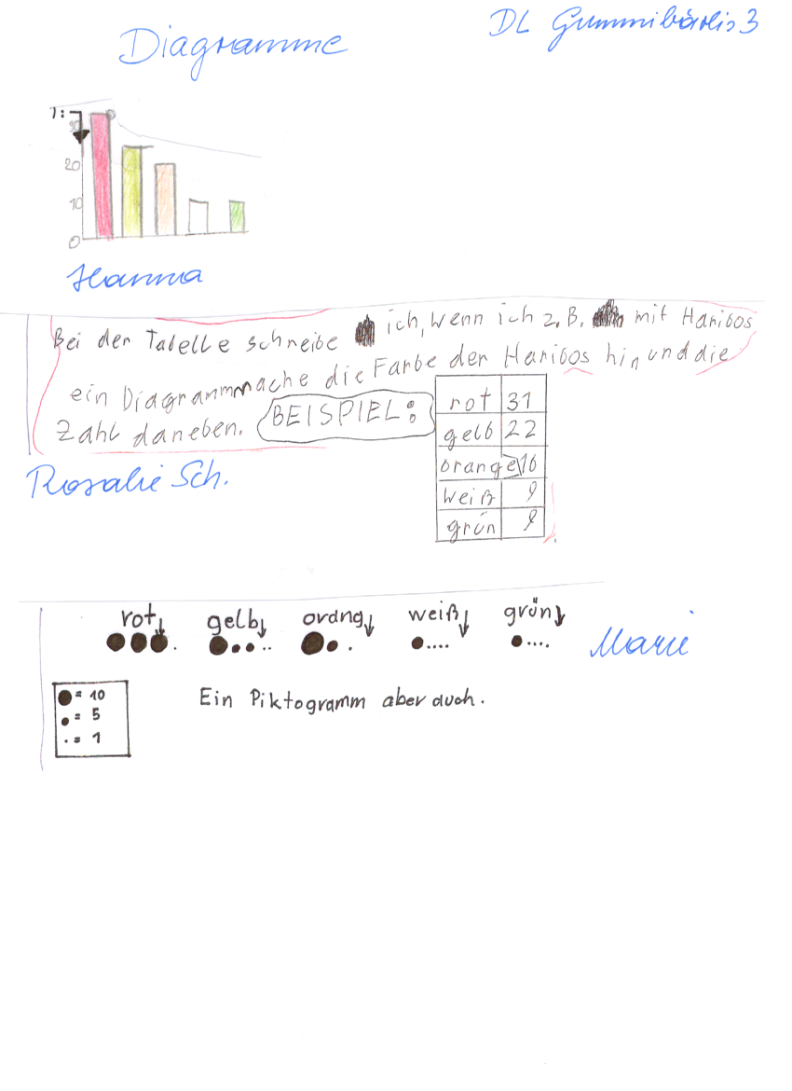 DL Gummibärlis 3
Diagramme
1:
30
20
10
0
Hanna
Bei der Tabelle schreibe ich, wenn ich z.B. mit Haribos
ein Diagramm mache die Farbe der Haribos hin und die
Zahl daneben. BEISPIEL:
rot 31
gelb 22
orange 16
weiß 9
grün 9
Rosalie Sch.
rot gelb orang weiß grün
Marie
= 10
= 5
= 1
Ein Piktogramm aber auch.